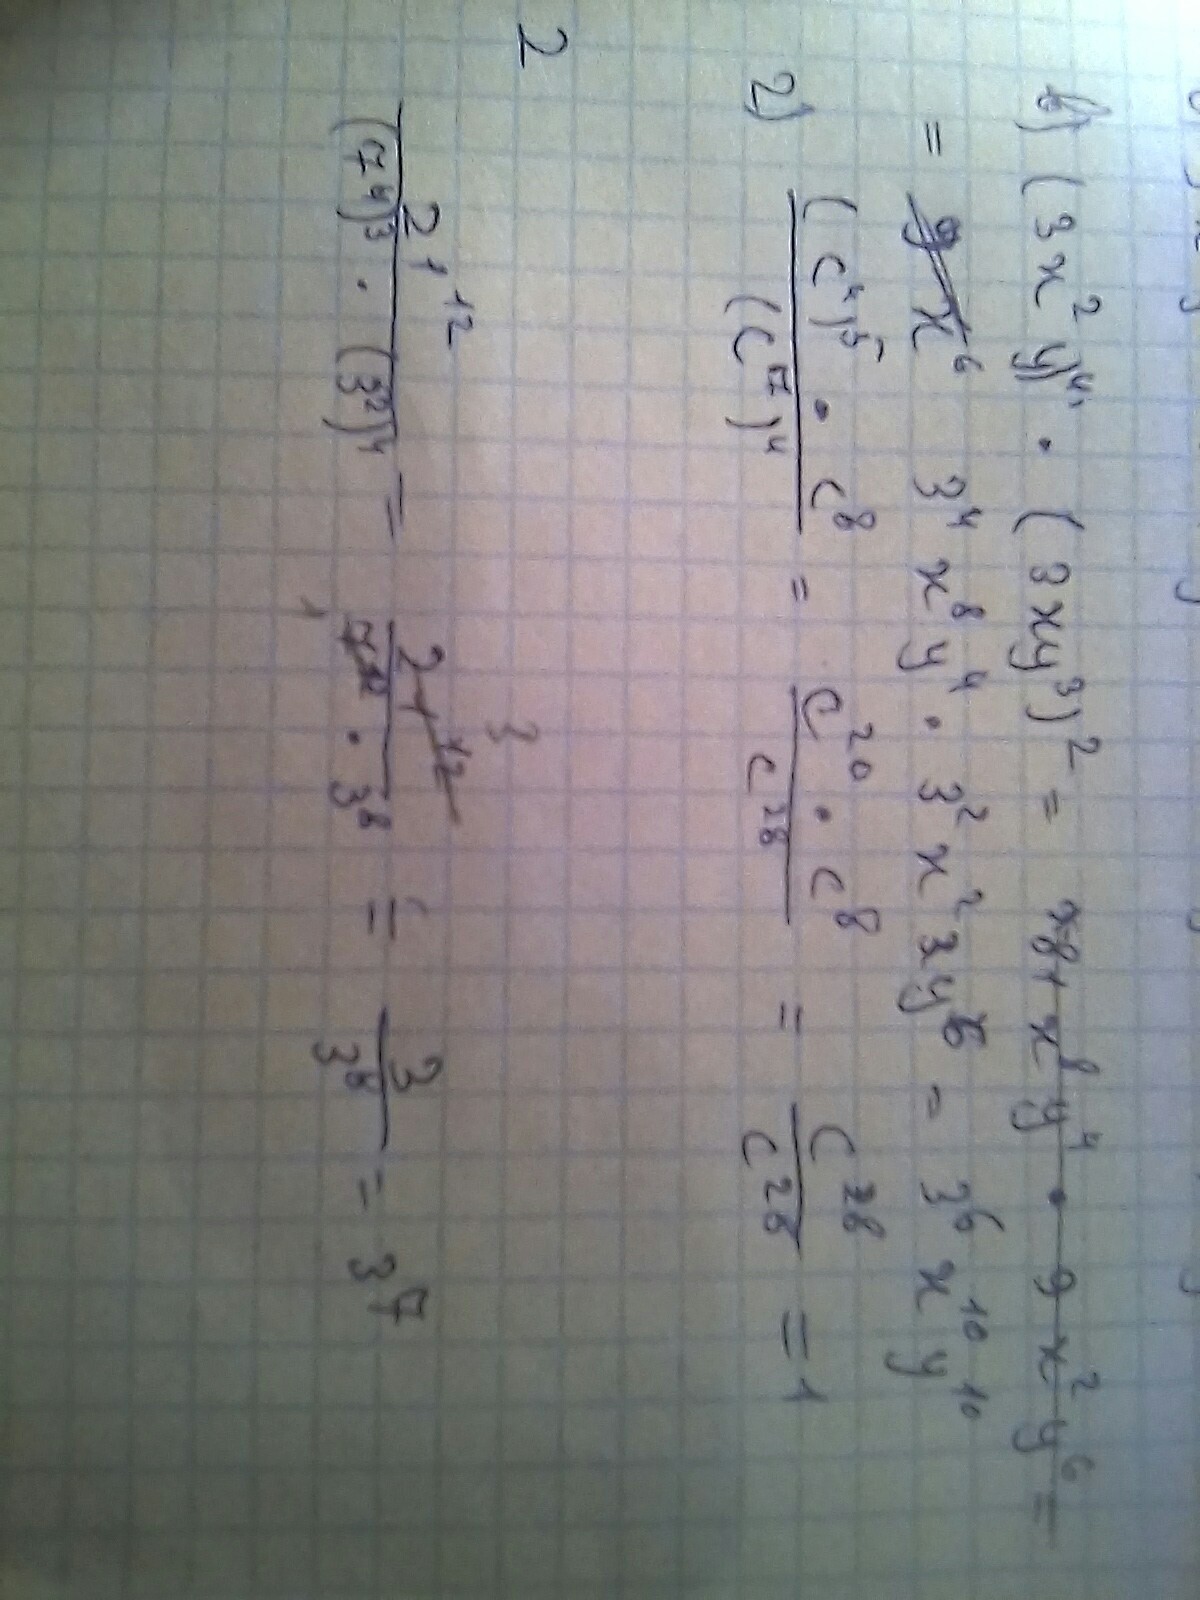 в) (3x²y)⁴ · (3xy³)² = x⁸y⁴ · 9x²y⁶ =
= 9x⁶ 3⁴x⁸y⁴ · 3²x²y⁶ = 3⁶x¹⁰y¹⁰
г) (c⁴)⁵ · c⁸ / (c⁷)⁴ = c²⁰ · c⁸ / c²⁸ = c²⁸ / c²⁸ = 1
2
21¹² / (7⁴)³ · (3²)⁴ = 21¹² 3 / 7¹² 1 · 3⁸ = 3 / 3⁸ = 3⁷